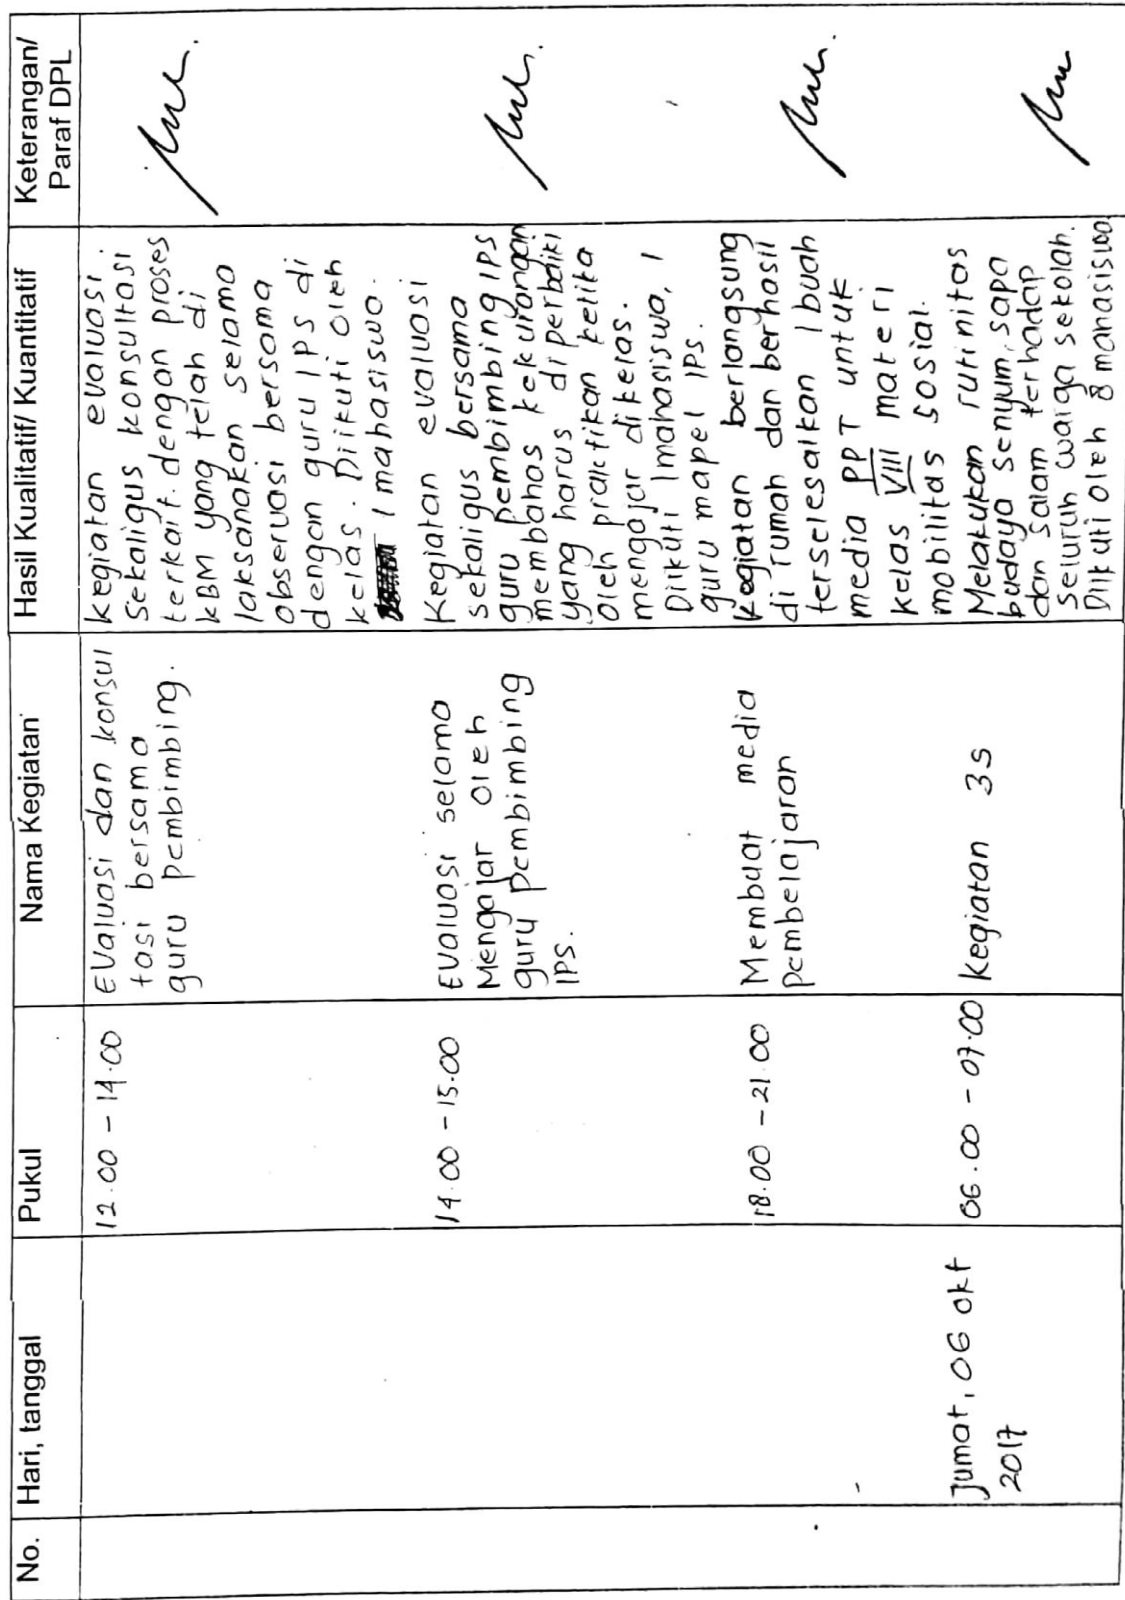 No.
Hari, tanggal
Pukul
Nama Kegiatan
Hasil Kualitatif/ Kuantitatif
Keterangan/
Paraf DPL
12.00 - 14.00
Evaluasi dan konsul
tasi bersama
guru pembimbing.
kegiatan evaluasi
sekaligus konsultasi
terkait dengan proses
KBM yang telah di
laksanakan selama
observasi bersama
dengan guru IPS di
kelas. Diikuti oleh
1 mahasiswa.
14.00 - 15.00
Evaluasi selama
Mengajar oleh
guru pembimbing
IPS.
Kegiatan evaluasi
sekaligus bersama
guru pembimbing IPS
membahas kekurangan
yang harus diperbaiki
oleh praktikan ketika
mengajar dikelas.
Diikuti 1 mahasiswa, 1
guru mapel IPS.
18.00 - 21.00
Membuat media
pembelajaran
Kegiatan berlangsung
di rumah dan berhasil
terselesaikan 1 buah
media PPT untuk
kelas VIII materi
mobilitas sosial.
Jumat, 06 Okt
2017
06.00 - 07.00
Kegiatan 3S
Melakukan rutinitas
budaya senyum, sapa
dan salam terhadap
seluruh warga sekolah.
Diikuti oleh 8 mahasiswa